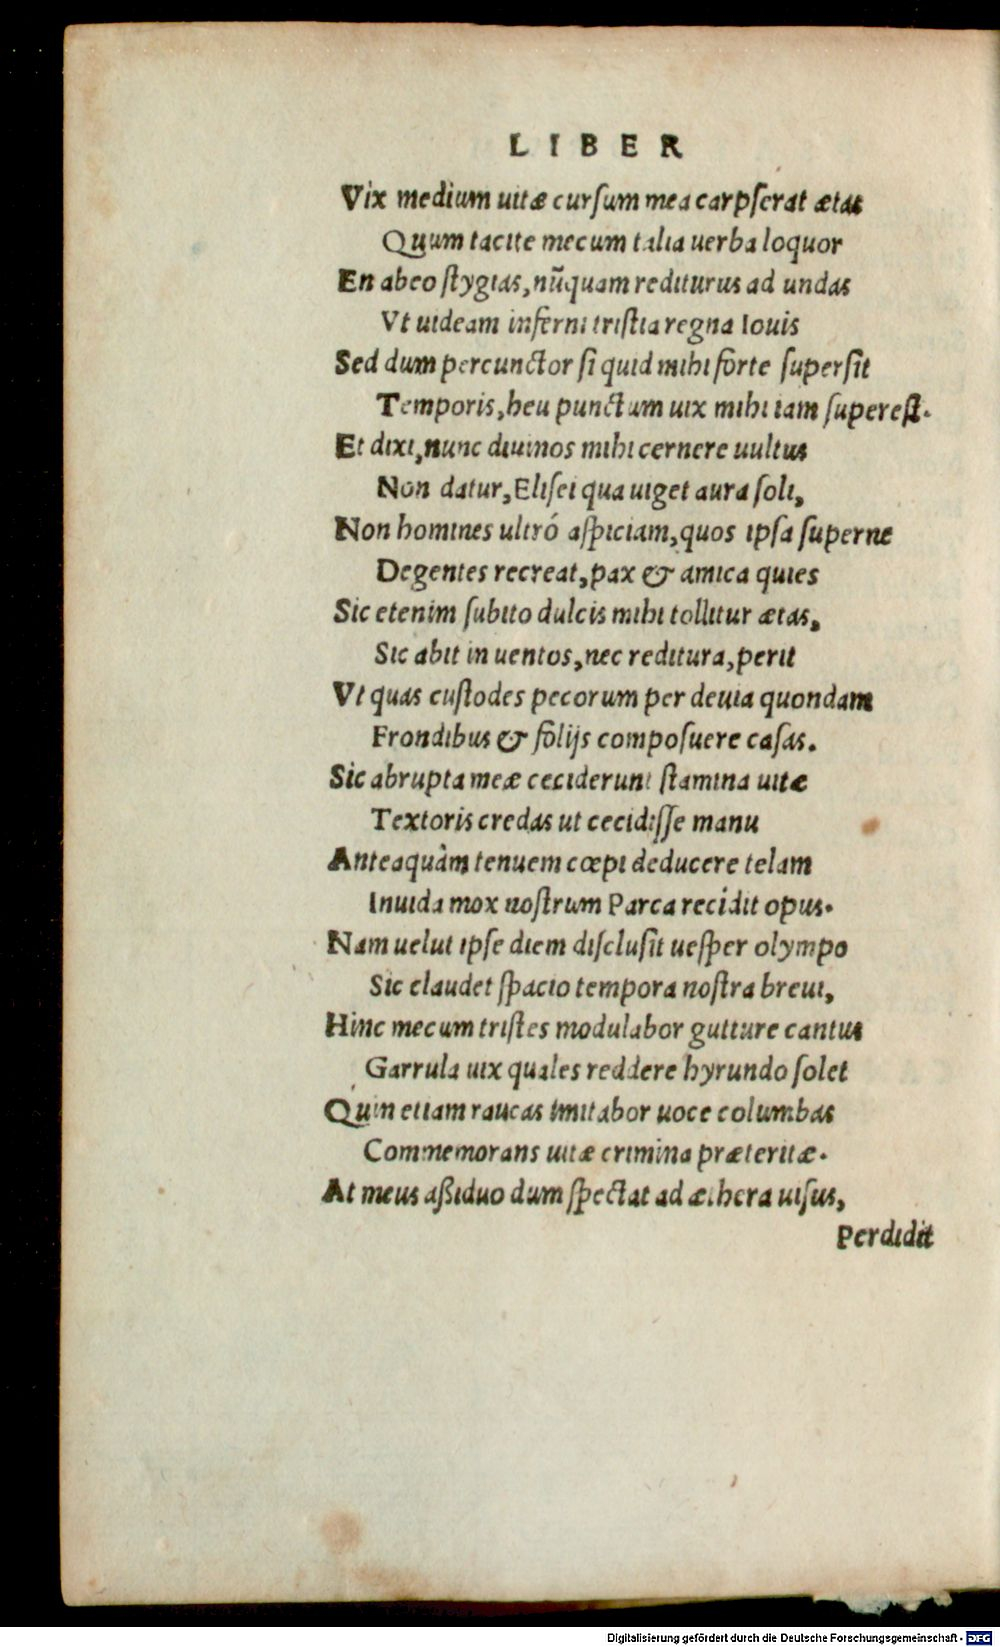 LIBER
Vix medium uitæ curſum mea carpſerat ætas
Quum tacite mecum talia uerba loquor
En abeo ſtygias, nũquam rediturus ad undas
Vt uideam inferni triſtia regna Iouis
Sed dum percunctor ſi quid mihi forte ſuperſit
Temporis, heu punctum uix mihi iam ſupereſt.
Et dixi, nunc diuinos mihi cernere uultus
Non datur, Eliſei qua uiget aura ſoli,
Non homines ultró aſpiciam, quos ipſa ſuperne
Degentes recreat, pax & amica quies
Sic etenim ſubito dulcis mihi tollitur ætas,
Sic abit in uentos, nec reditura, perit
Vt quas cuſtodes pecorum per deuia quondam
Frondibus & folijs compoſuere caſas.
Sic abrupta meæ ceciderunt ſtamina uitæ
Textoris credas ut cecidiſſe manu
Anteaquàm tenuem cœpi deducere telam
Inuida mox noſtrum Parca recidit opus.
Nam uelut ipſe diem diſcluſit ueſper olympo
Sic claudet ſpacio tempora noſtra breui,
Hinc mecum triſtes modulabor gutture cantus
Garrula uix quales reddere hyrundo ſolet
Quin etiam raucas imitabor uoce columbas
Commemorans uitæ crimina præteritæ.
At meus aßiduo dum ſpectat ad æthera uiſus,
Perdidit
Digitalisierung gefördert durch die Deutsche Forschungsgemeinschaft - DFG